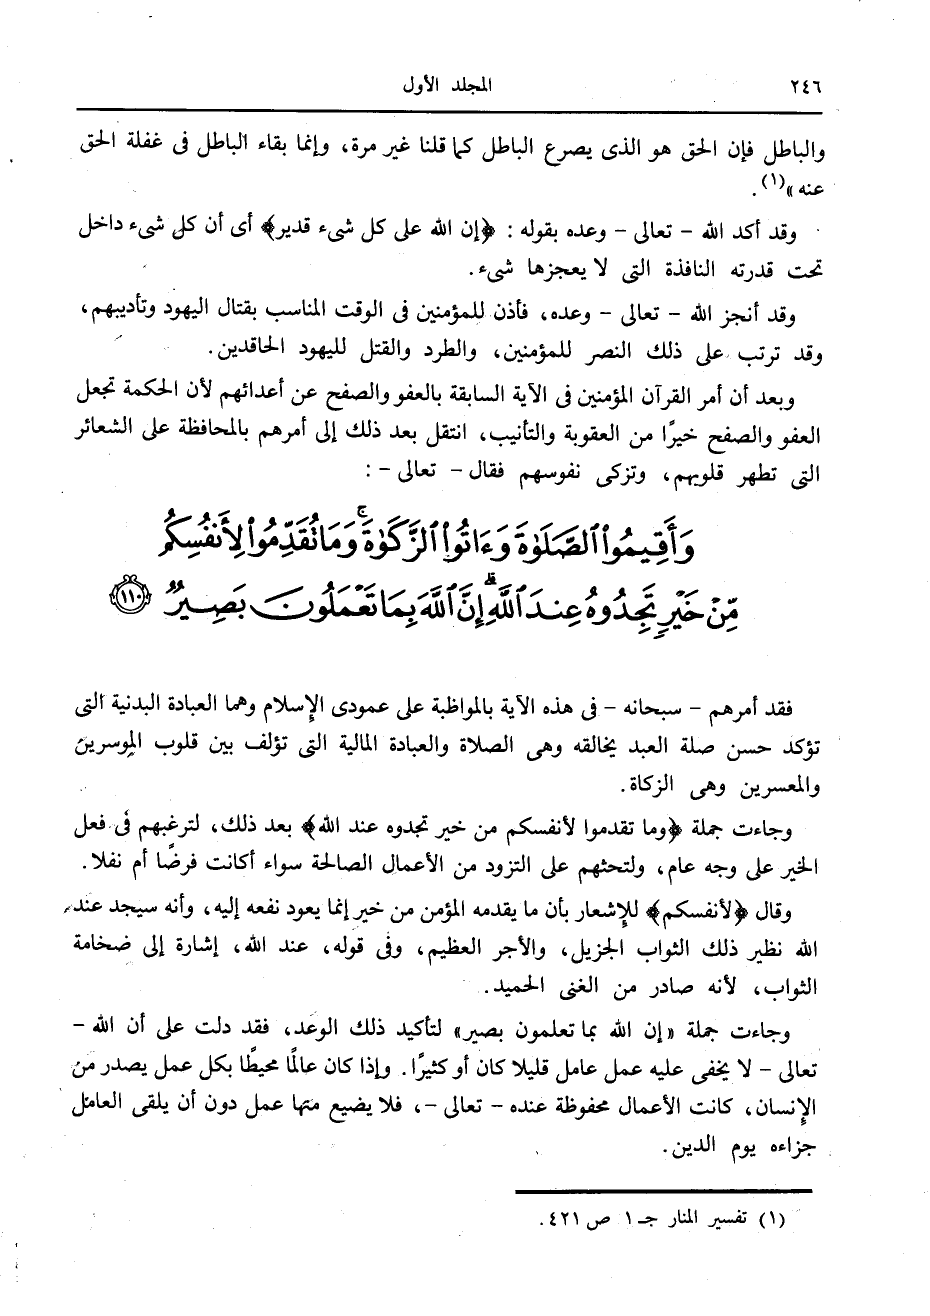 ٢٤٦
المجلد الأول
والباطل فإن الحق هو الذى يصرع الباطل كما قلنا غير مرة، وإنما بقاء الباطل فى غفلة الحق
عنه»(١).
وقد أكد الله - تعالى - وعده بقوله : ﴿إن الله على كل شىء قدير﴾ أى أن كل شىء داخل
تحت قدرته النافذة التى لا يعجزها شىء.
وقد أنجز الله - تعالى - وعده، فأذن للمؤمنين فى الوقت المناسب بقتال اليهود وتأديبهم،
وقد ترتب على ذلك النصر للمؤمنين، والطرد والقتل لليهود الحاقدين.
وبعد أن أمر القرآن المؤمنين فى الآية السابقة بالعفو والصفح عن أعدائهم لأن الحكمة تجعل
العفو والصفح خيرًا من العقوبة والتأنيب، انتقل بعد ذلك إلى أمرهم بالمحافظة على الشعائر
التى تطهر قلوبهم، وتزكى نفوسهم فقال - تعالى - :
وَأَقِيمُوا۟ ٱلصَّلَوٰةَ وَءَاتُوا۟ ٱلزَّكَوٰةَ ۚ وَمَا تُقَدِّمُوا۟ لِأَنفُسِكُم
مِّنْ خَيْرٍ تَجِدُوهُ عِندَ ٱللَّهِ ۗ إِنَّ ٱللَّهَ بِمَا تَعْمَلُونَ بَصِيرٌ ﴿١١٠﴾
فقد أمرهم - سبحانه - فى هذه الآية بالمواظبة على عمودى الإسلام وهما العبادة البدنية التى
تؤكد حسن صلة العبد بخالقه وهى الصلاة والعبادة المالية التى تؤلف بين قلوب الموسرين
والمعسرين وهى الزكاة.
وجاءت جملة ﴿وما تقدموا لأنفسكم من خير تجدوه عند الله﴾ بعد ذلك، لترغبهم فى فعل
الخير على وجه عام، ولتحثهم على التزود من الأعمال الصالحة سواء أكانت فرضًا أم نفلا.
وقال ﴿لأنفسكم﴾ للإشعار بأن ما يقدمه المؤمن من خير إنما يعود نفعه إليه، وأنه سيجد عند
الله نظير ذلك الثواب الجزيل، والأجر العظيم، وفى قوله، عند الله، إشارة إلى ضخامة
الثواب، لأنه صادر من الغنى الحميد.
وجاءت جملة «إن الله بما تعلمون بصير» لتأكيد ذلك الوعد، فقد دلت على أن الله -
تعالى - لا يخفى عليه عمل عامل قليلا كان أو كثيرًا. وإذا كان عالمًا محيطًا بكل عمل يصدر من
الإنسان، كانت الأعمال محفوظة عنده - تعالى -، فلا يضيع منها عمل دون أن يلقى العامل
جزاءه يوم الدين.
(١) تفسير المنار جـ ١ ص ٤٢١.